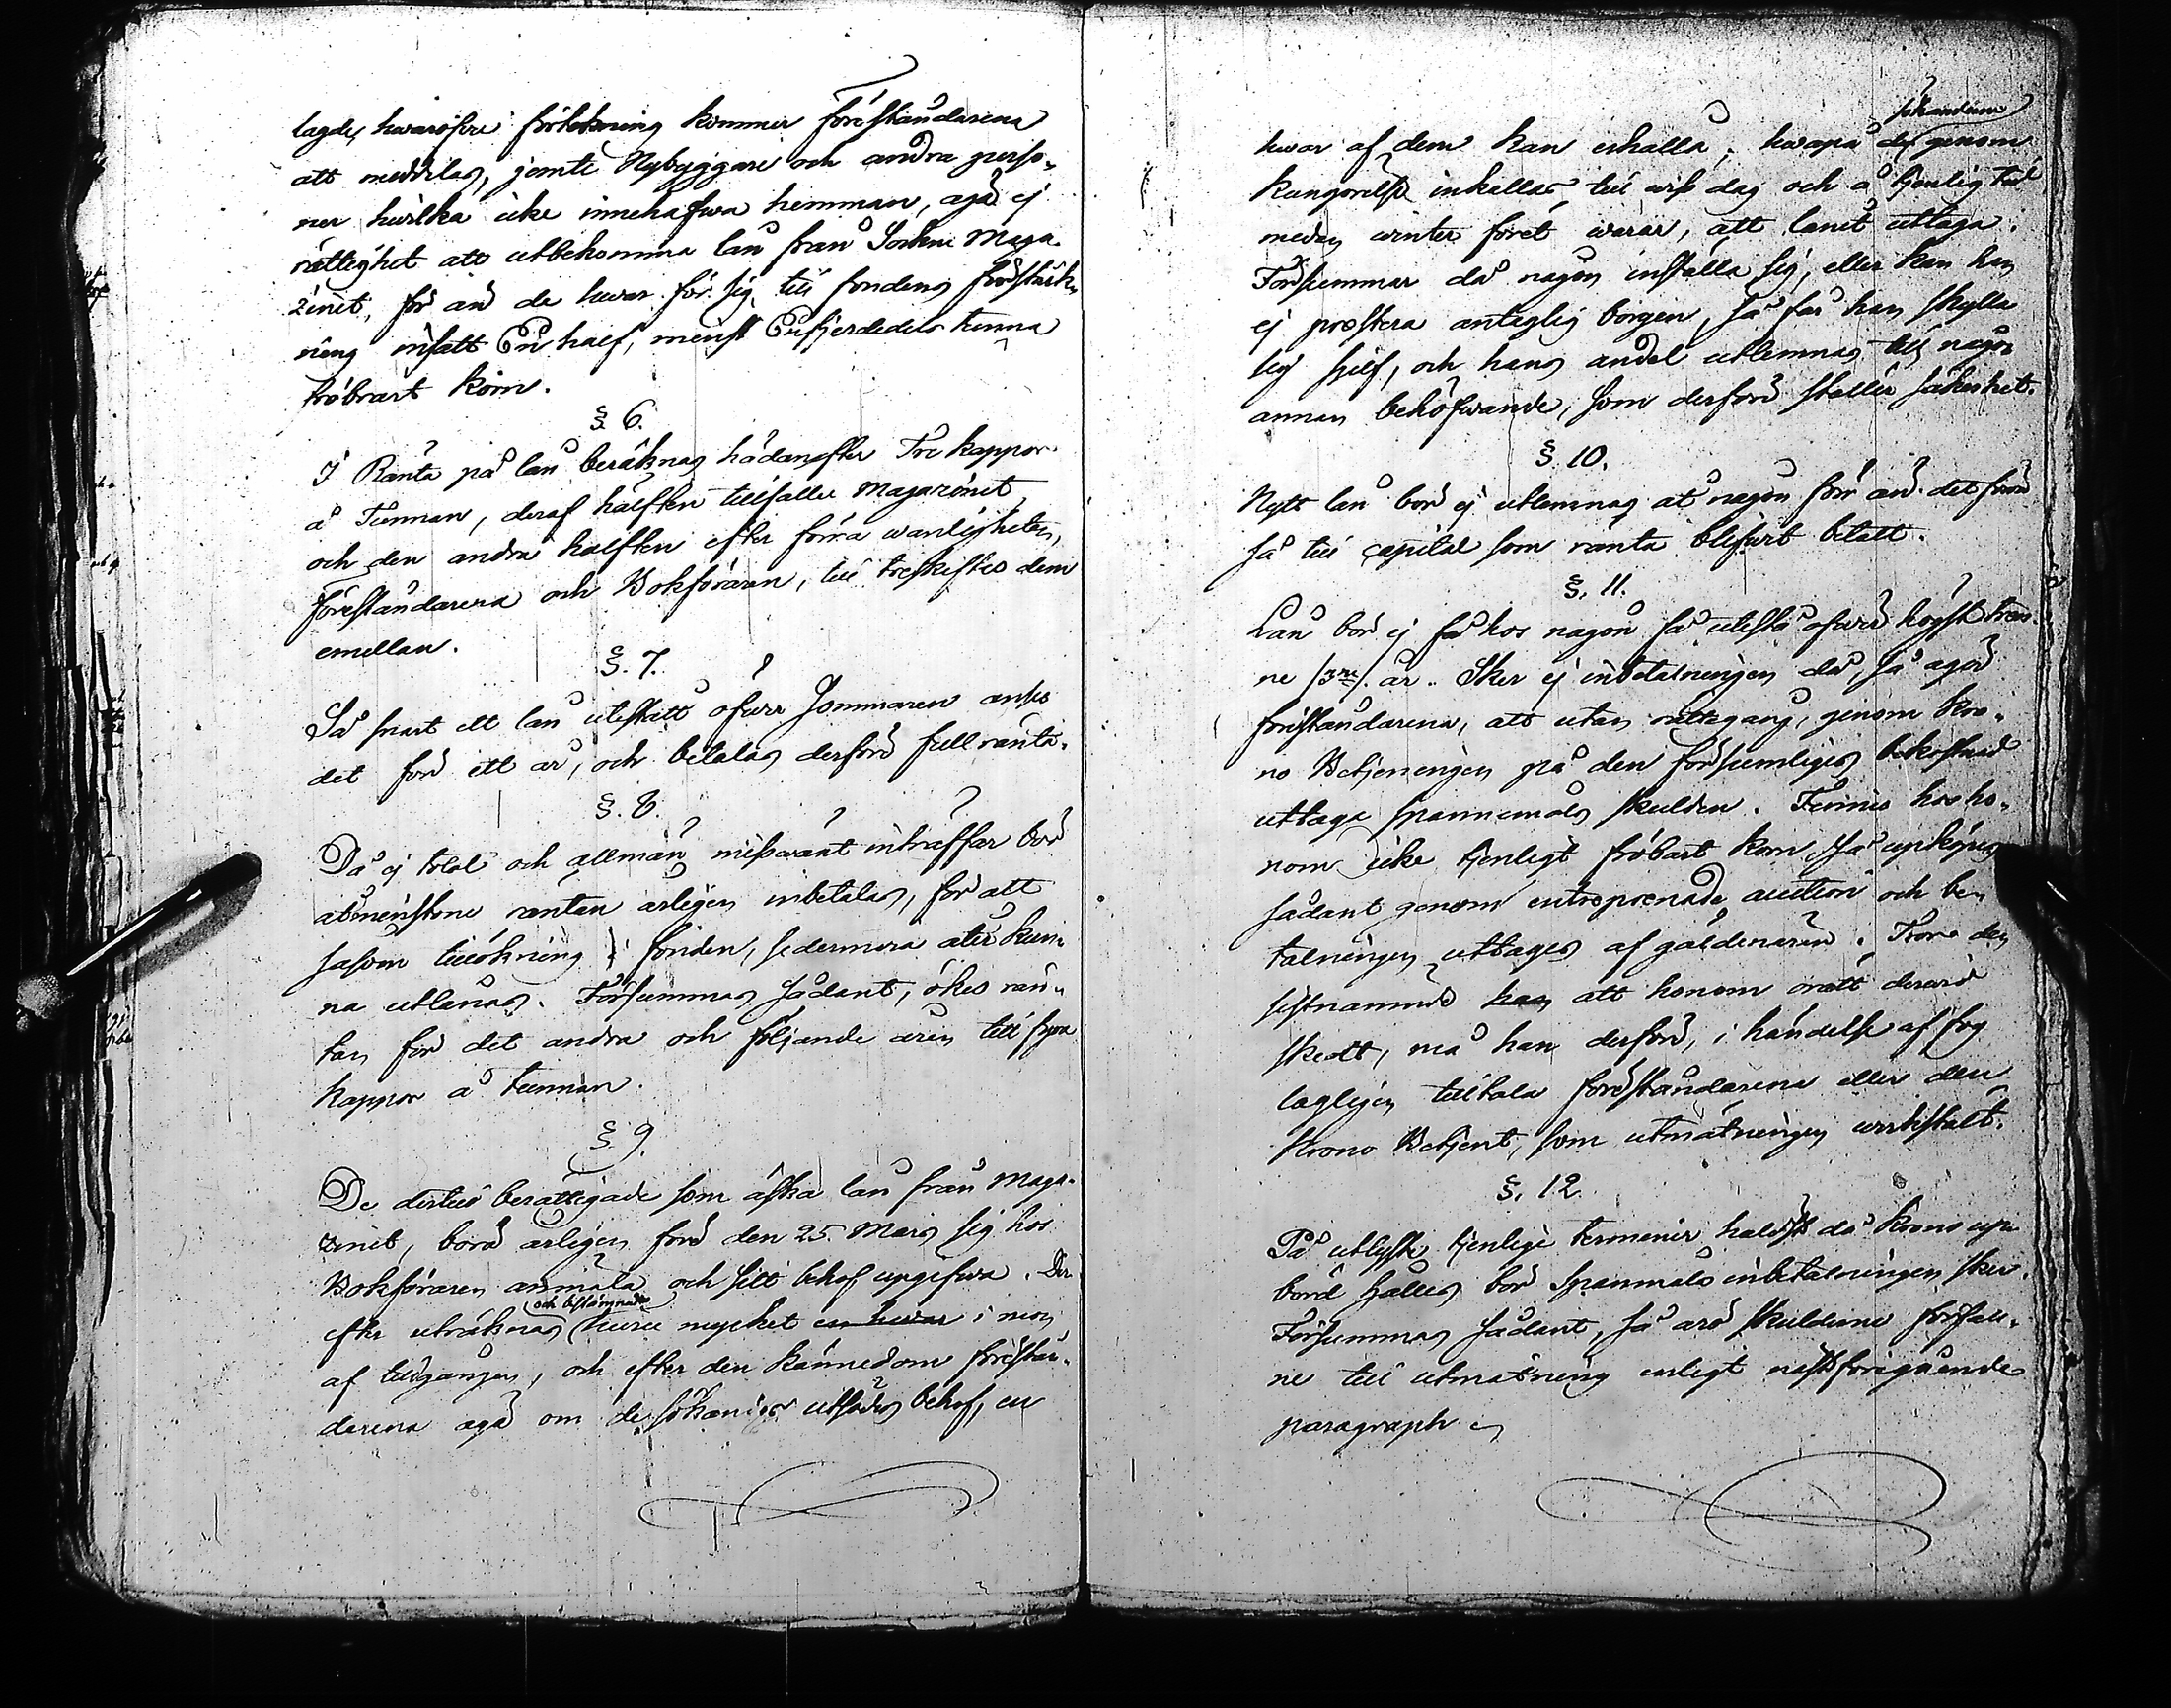 lagde, hwaröfwer förtekning kommer föreståndarena
att meddelas, jemte Nybyggare och andra perso-
ner hwilka icke innehafwa hemman, äga ej
rättighet att utbekomma lån från Sockne Maga-
zinet, för än de hwar för sig, till fondens förstärk-
ning insatt En half, minst En fjerdedels tunna
fröbart korn.
§ 6.
I Ränta på lån beräknas hädanefter Tre kappor
å Tunnan, deraf hälften tillfaller Magazinet,
och den andra hälften efter förra wanligheten,
föreståndarena och Bokföraren, till treskiftes dem
emellan.
§. 7.
Så snart ett lån utestått öfwer Sommaren anses
det för ett år, och betalas derföre full ränta.
§. 8.
Då ej total och allmän misswäxt inträffar bör
åtminstone räntan årligen inbetalas, för att
såsom tillökning i fonden, sedermera åter kun-
na utlånas. Försummas sådant, ökes rän-
tan för det andra och följande åren till fyra
kappor å tunnan.
§ 9.
De dertill berättigade som äska lån från Maga-
zinet, böra årligen före den 25. Mars sig hos
Bokföraren anmäla och sitt behof uppgifwa. Der-
och bestämmes
efter uträknas huru mycket en hwar i mon
af tillgången, och efter den kännedom förestån-
darena äga om de sökandes utsädes behof, en
sökanderne
hwar af dem kan erhålla; hwarpå de genom
kungörelse inkallas till wiss dag och å tjenlig tid
medan winter föret warar, att lånet uttaga.
Försummar då någon inställa sig, eller kan han
ej præstera antaglig borgen, så får han skylla
sig sjelf, och hans andel utlemnas till någon
annan behöfwande, som derföre ställer säkerhet.
§. 10.
Nytt lån bör ej utlemnas åt någon förr än det förra
så till capital som ränta blifwit betalt.
§. 11.
Lån bör ej få hos någon så utestå öfwer högst tren-
ne /3ne/ år. Sker ej inbetalningen då, så äger
föreståndarena, att utan rättegång, genom Kro-
no Betjeningen på den försumliges bekostnad
uttaga spannemåls skulden. Finnes hos ho-
nom icke tjenligt fröbart korn, så upköpes
sådant genom entreprenade auction och be-
talningen uttages af gäldenären. Tror den
sistnämnde han att honom orätt derwid
skedt, må han derföre, i händelse af fog
lagligen tilltala föreståndarena eller den
Krono Betjent, som utmätningen werkstält.
§. 12.
På utlyste tjenlige terminer hälst då Krono up-
börd hålles bör Spanmåls inbetalningen ske.
Försummas sådant, så äro skulderne förfall-
ne till utmätning enligt nästföregående
paragraph